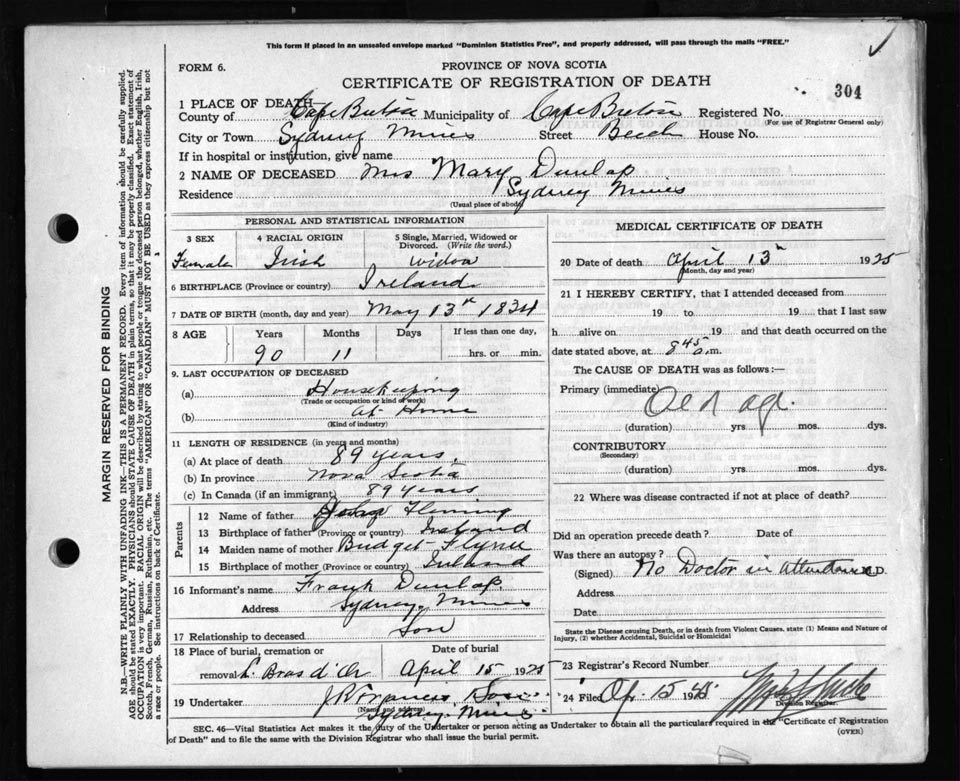 This form if placed in an unsealed envelope marked "Dominion Statistics Free", and properly addressed, will pass through the mails "FREE."
FORM 6.
PROVINCE OF NOVA SCOTIA
CERTIFICATE OF REGISTRATION OF DEATH
304
1 PLACE OF DEATH—
County of Cape Breton Municipality of Cape Breton Registered No.
(For use of Registrar General only)
City or Town Sydney Mines Street Beech House No.
If in hospital or institution, give name
2 NAME OF DECEASED Mrs Mary Dunlap
Residence Sydney Mines
(Usual place of abode)
PERSONAL AND STATISTICAL INFORMATION
3 SEX 4 RACIAL ORIGIN 5 Single, Married, Widowed or Divorced. (Write the word.)
Female Irish Widow
6 BIRTHPLACE (Province or country) Ireland
7 DATE OF BIRTH (month, day and year) May 13th 1834
8 AGE Years Months Days If less than one day,
90 11 hrs. or min.
9. LAST OCCUPATION OF DECEASED
(a) Housekeeping
(Trade or occupation or kind of work)
(b) at Home
(Kind of industry)
11 LENGTH OF RESIDENCE (in years and months)
(a) At place of death 89 years.
(b) In province Nova Scotia
(c) In Canada (if an immigrant) 89 years
Parents
12 Name of father Fleming
13 Birthplace of father (Province or country) Ireland
14 Maiden name of mother Bridget Flynn
15 Birthplace of mother (Province or country) Ireland
16 Informant's name Frank Dunlap
Address Sydney Mines
17 Relationship to deceased Son
18 Place of burial, cremation or removal L. Bras d'Or Date of burial April 15 1925
19 Undertaker
(Name and address)
Sydney Mines
MEDICAL CERTIFICATE OF DEATH
20 Date of death April 13th 1925
(Month, day and year)
21 I HEREBY CERTIFY, that I attended deceased from
19 to 19 that I last saw
h alive on 19 and that death occurred on the
date stated above, at 8 45 a.m.
The CAUSE OF DEATH was as follows:—
Primary (immediate) Old age.
(duration) yrs mos. dys.
CONTRIBUTORY
(Secondary)
(duration) yrs mos. dys.
22 Where was disease contracted if not at place of death?
Did an operation precede death? Date of
Was there an autopsy?
(Signed) No Doctor in attendance M.D.
Address
Date
State the Disease causing Death, or in death from Violent Causes, state (1) Means and Nature of Injury, (2) whether Accidental, Suicidal or Homicidal
23 Registrar's Record Number
24 Filed Ap. 15 1925
Division Registrar.
SEC. 46—Vital Statistics Act makes it the duty of the Undertaker or person acting as Undertaker to obtain all the particulars required in the "Certificate of Registration
of Death" and to file the same with the Division Registrar who shall issue the burial permit.
(OVER)
MARGIN RESERVED FOR BINDING
N.B.—WRITE PLAINLY WITH UNFADING INK—THIS IS A PERMANENT RECORD. Every item of information should be carefully supplied.
AGE should be stated EXACTLY. PHYSICIANS should STATE CAUSE OF DEATH in plain terms, so that it may be properly classified. Exact statement of
OCCUPATION is very important. RACIAL ORIGIN will be described by stating to what people or tongue the deceased person belonged, whether English, Irish,
Scotch, French, German, Russian, Ruthenian, etc. The terms "AMERICAN" OR "CANADIAN" MUST NOT BE USED as they express citizenship but not
a race or people. See instructions on back of Certificate.